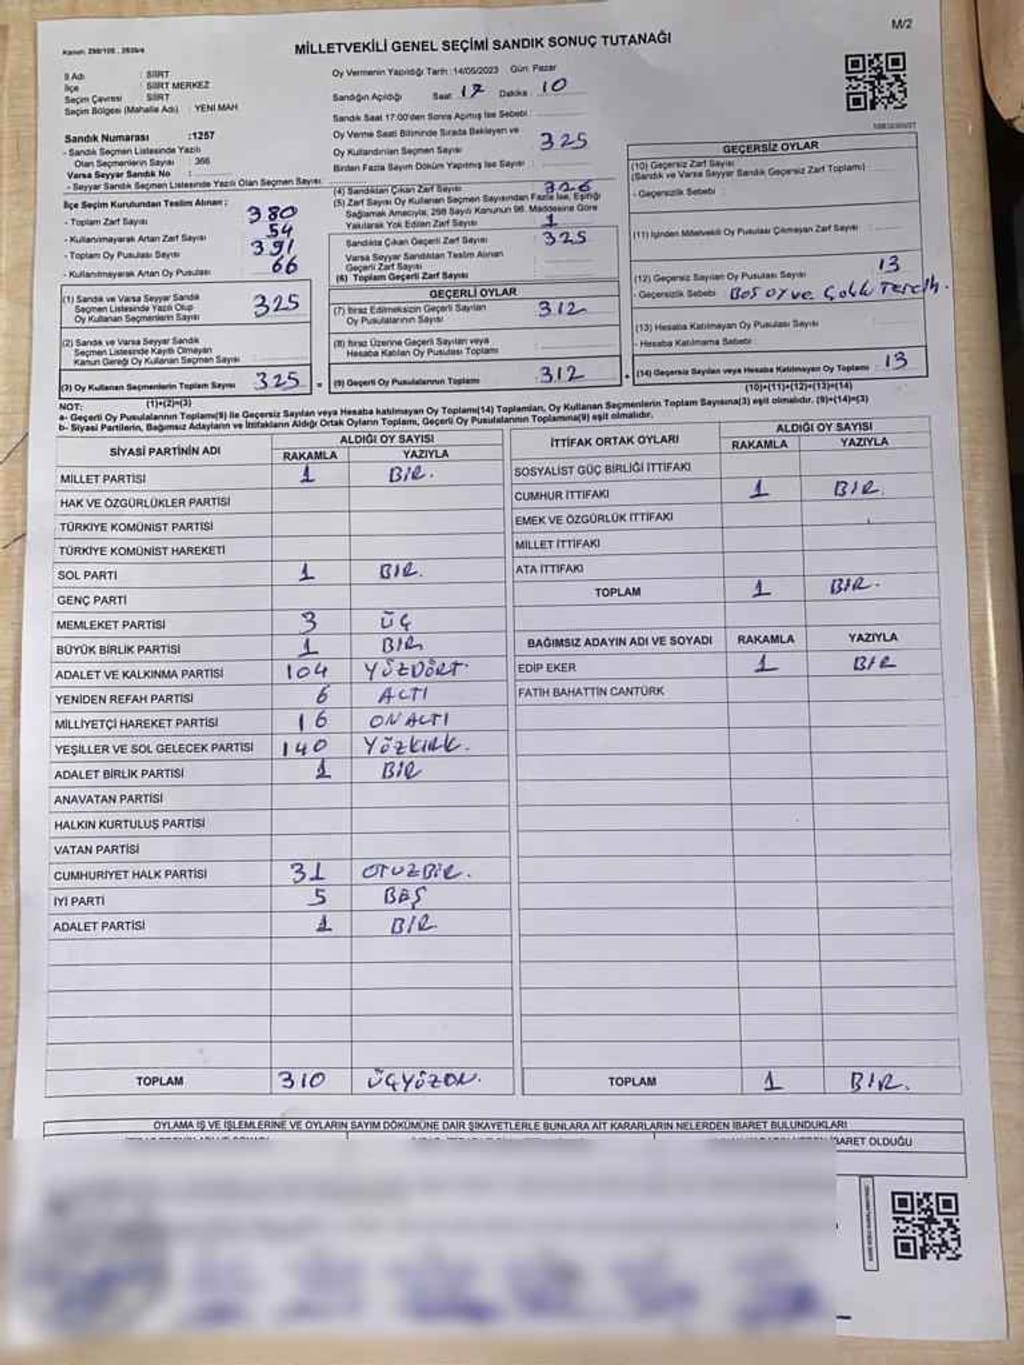 M/2
MİLLETVEKİLİ GENEL SEÇİMİ SANDIK SONUÇ TUTANAĞI
İl Adı : SİİRT
İlçe : SİİRT MERKEZ
Seçim Çevresi : SİİRT
Seçim Bölgesi (Mahalle Adı) : YENİ MAH
Sandık Numarası :1257
- Sandık Seçmen Listesinde Yazılı
Olan Seçmenlerin Sayısı : 366
Varsa Seyyar Sandık No :
- Seyyar Sandık Seçmen Listesinde Yazılı Olan Seçmen Sayısı:
İlçe Seçim Kurulundan Teslim Alınan :
- Toplam Zarf Sayısı 380
- Kullanılmayarak Artan Zarf Sayısı 54
- Toplam Oy Pusulası Sayısı 391
- Kullanılmayarak Artan Oy Pusulası 66
(1) Sandık ve Varsa Seyyar Sandık
Seçmen Listesinde Yazılı Olup
Oy Kullanan Seçmenlerin Sayısı 325
(2) Sandık ve Varsa Seyyar Sandık
Seçmen Listesinde Kayıtlı Olmayan
Kanun Gereği Oy Kullanan Seçmen Sayısı :
(3) Oy Kullanan Seçmenlerin Toplam Sayısı 325
(1)+(2)=(3)
Oy Vermenin Yapıldığı Tarih :14/05/2023 Gün: Pazar
Sandığın Açıldığı Saat: 17 Dakika : 10
Sandık Saat 17:00'den Sonra Açılmış İse Sebebi :
Oy Verme Saati Bitiminde Sırada Bekleyen ve
Oy Kullandırılan Seçmen Sayısı : 325
Birden Fazla Sayım Döküm Yapılmış İse Sayısı :
(4) Sandıktan Çıkan Zarf Sayısı 326
(5) Zarf Sayısı Oy Kullanan Seçmen Sayısından Fazla İse, Eşitliği
Sağlamak Amacıyla, 298 Sayılı Kanunun 98. Maddesine Göre
Yakılarak Yok Edilen Zarf Sayısı 1
Sandıkta Çıkan Geçerli Zarf Sayısı 325
Varsa Seyyar Sandıktan Teslim Alınan
Geçerli Zarf Sayısı
(6) Toplam Geçerli Zarf Sayısı
GEÇERLİ OYLAR
(7) İtiraz Edilmeksizin Geçerli Sayılan
Oy Pusulalarının Sayısı 312
(8) İtiraz Üzerine Geçerli Sayılan veya
Hesaba Katılan Oy Pusulası Toplamı
(9) Geçerli Oy Pusulalarının Toplamı 312
GEÇERSİZ OYLAR
(10) Geçersiz Zarf Sayısı
(Sandık ve Varsa Seyyar Sandık Geçersiz Zarf Toplamı)
- Geçersizlik Sebebi :
(11) İçinden Milletvekili Oy Pusulası Çıkmayan Zarf Sayısı
(12) Geçersiz Sayılan Oy Pusulası Sayısı 13
- Geçersizlik Sebebi : Boş oy ve Çoklu Tercih.
(13) Hesaba Katılmayan Oy Pusulası Sayısı
- Hesaba Katılmama Sebebi :
(14) Geçersiz Sayılan veya Hesaba Katılmayan Oy Toplamı 13
(10)+(11)+(12)+(13)=(14)
NOT:
a- Geçerli Oy Pusulaları Toplamı(9) ile Geçersiz Sayılan veya Hesaba katılmayan Oy Toplamı(14) Toplamları, Oy Kullanan Seçmenlerin Toplam Sayısına(3) eşit olmalıdır. (9)+(14)=(3)
b- Siyasi Partilerin, Bağımsız Adayların ve İttifakların Aldığı Ortak Oyların Toplamı, Geçerli Oy Pusulalarının Toplamına(9) eşit olmalıdır.
SİYASİ PARTİNİN ADI ALDIĞI OY SAYISI
RAKAMLA YAZIYLA
MİLLET PARTİSİ 1 BİR.
HAK VE ÖZGÜRLÜKLER PARTİSİ
TÜRKİYE KOMÜNİST PARTİSİ
TÜRKİYE KOMÜNİST HAREKETİ
SOL PARTİ 1 BİR.
GENÇ PARTİ
MEMLEKET PARTİSİ 3 ÜÇ
BÜYÜK BİRLİK PARTİSİ 1 BİR
ADALET VE KALKINMA PARTİSİ 104 YÜZDÖRT.
YENİDEN REFAH PARTİSİ 6 ALTI
MİLLİYETÇİ HAREKET PARTİSİ 16 ONALTI
YEŞİLLER VE SOL GELECEK PARTİSİ 140 YÜZKIRK.
ADALET BİRLİK PARTİSİ 1 BİR
ANAVATAN PARTİSİ
HALKIN KURTULUŞ PARTİSİ
VATAN PARTİSİ
CUMHURİYET HALK PARTİSİ 31 OTUZBİR.
İYİ PARTİ 5 BEŞ
ADALET PARTİSİ 1 BİR
TOPLAM 310 ÜÇYÜZON.
İTTİFAK ORTAK OYLARI ALDIĞI OY SAYISI
RAKAMLA YAZIYLA
SOSYALİST GÜÇ BİRLİĞİ İTTİFAKI
CUMHUR İTTİFAKI 1 BİR.
EMEK VE ÖZGÜRLÜK İTTİFAKI
MİLLET İTTİFAKI
ATA İTTİFAKI
TOPLAM 1 BİR.
BAĞIMSIZ ADAYIN ADI VE SOYADI RAKAMLA YAZIYLA
EDİP EKER 1 BİR
FATİH BAHATTİN CANTÜRK
TOPLAM 1 BİR.
OYLAMA İŞ VE İŞLEMLERİNE VE OYLARIN SAYIM DÖKÜMÜNE DAİR ŞİKAYETLERLE BUNLARA AİT KARARLARIN NELERDEN İBARET BULUNDUKLARI
İBARET OLDUĞU